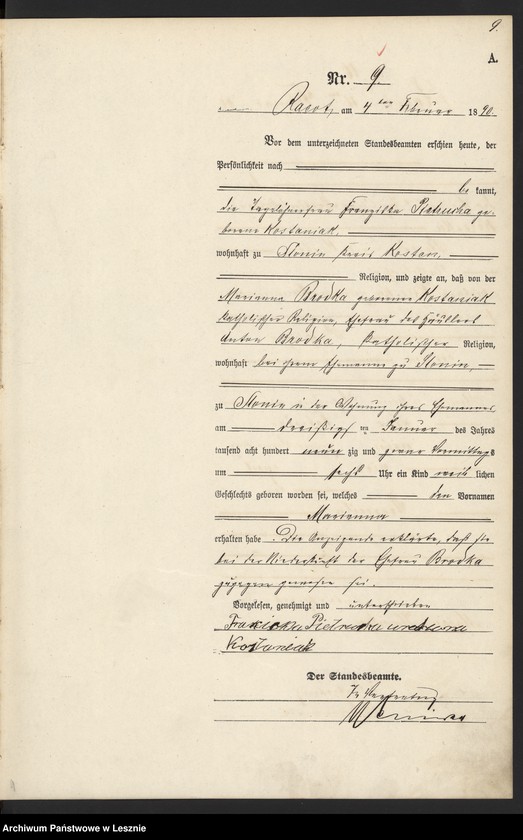 9.
A.
Nr. 9.
Racot, am 4ten Februar 1890.
Vor dem unterzeichneten Standesbeamten erschien heute, der
Persönlichkeit nach
be kannt,
die Tagelöhnerfrau Franziska Pietrucha ge-
borene Kostaniak.
wohnhaft zu Slonin Kreis Kosten.
Religion, und zeigte an, daß von der
Marianna Brodka geborenen Kostaniak
katholischer Religion, Ehefrau des Häuslers
Anton Brodka, katholischer Religion,
wohnhaft bei ihrem Ehemanne zu Slonin
zu Slonin in der Wohnung ihres Ehemannes
am dreißigsten Januar des Jahres
tausend acht hundert neun zig und zwar Vormittags
um sechs Uhr ein Kind weib lichen
Geschlechts geboren worden sei, welches den Vornamen
Marianna
erhalten habe. Die Anzeigende erklärte, daß sie
bei der Niederkunft der Ehefrau Brodka
zugegen gewesen sei.
Vorgelesen, genehmigt und unterschrieben
Pietrucha
Kostaniak
Der Standesbeamte.
In Vertretung
Archiwum Państwowe w Lesznie